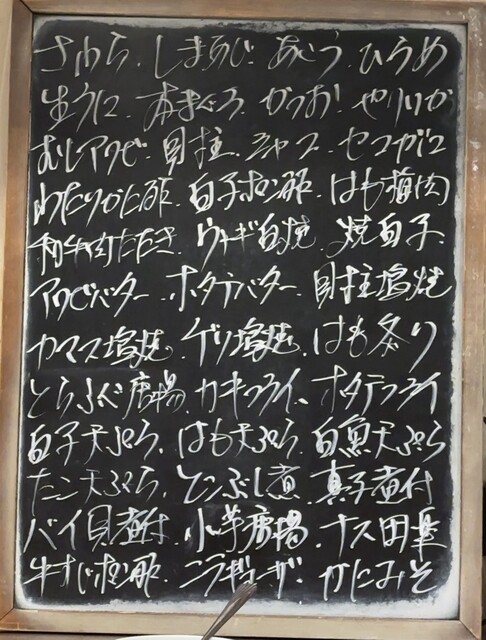 さわら．しまあじ．あじ．ひらめ
生うに．本まぐろ．かつお．やりいか
むしアワビ．貝柱．シャコ．セコガニ
わたりかに酢．白子ポン酢．はも梅肉
和牛肉たたき．ウナギ白焼．焼白子．
アワビバター．ホタテバター．貝柱塩焼
カマス塩焼．ゲソ塩焼．はも炙り
とらふぐ唐揚．カキフライ．ホタテフライ
白子天ぷら．はも天ぷら．白魚天ぷら
たこ天ぷら．とこぶし煮．真子煮付
バイ貝煮付．小芋唐揚．ナス田楽
牛すじポン酢．ニラギョーザ．かにみそ